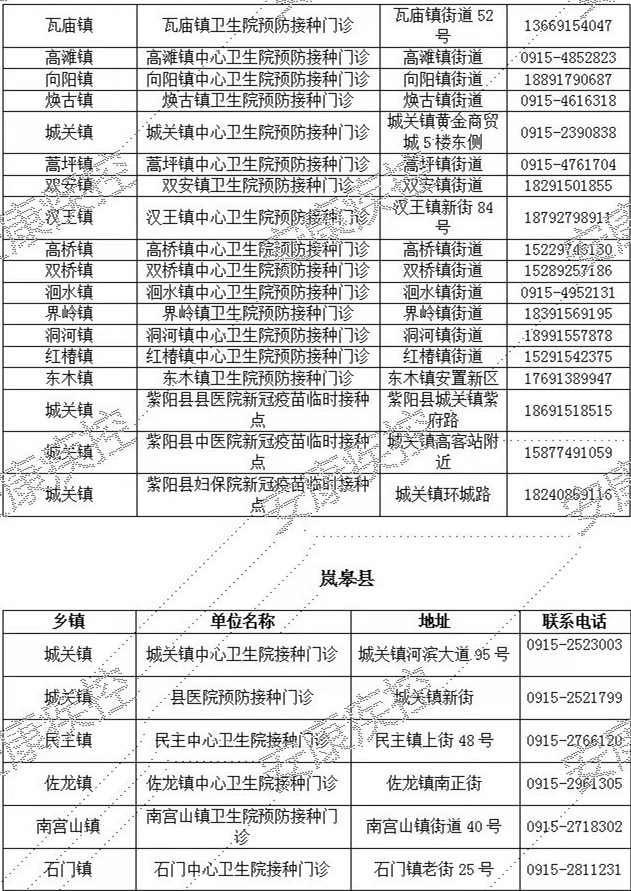 瓦庙镇 瓦庙镇卫生院预防接种门诊 瓦庙镇街道 52 号 13669154047
高滩镇 高滩镇中心卫生院预防接种门诊 高滩镇街道 0915-4852823
向阳镇 向阳镇中心卫生院预防接种门诊 向阳镇街道 18891790687
焕古镇 焕古镇卫生院预防接种门诊 焕古镇街道 0915-4616318
城关镇 城关镇中心卫生院预防接种门诊 城关镇黄金商贸城 5 楼东侧 0915-2390838
蒿坪镇 蒿坪镇中心卫生院预防接种门诊 蒿坪镇街道 0915-4761704
双安镇 双安镇卫生院预防接种门诊 双安镇街道 18291501855
汉王镇 汉王镇中心卫生院预防接种门诊 汉王镇新街 84 号 18792798911
高桥镇 高桥镇中心卫生院预防接种门诊 高桥镇街道
双桥镇 双桥镇中心卫生院预防接种门诊 双桥镇街道 15289257186
洄水镇 洄水镇中心卫生院预防接种门诊 洄水镇街道 0915-4952131
界岭镇 界岭镇卫生院预防接种门诊 界岭镇街道 18391569195
洞河镇 洞河镇中心卫生院预防接种门诊 洞河镇街道 18991557878
红椿镇 红椿镇中心卫生院预防接种门诊 红椿镇街道 15291542375
东木镇 东木镇卫生院预防接种门诊 东木镇安置新区 17691389947
城关镇 紫阳县县医院新冠疫苗临时接种点 紫阳县城关镇紫府路 18691518515
城关镇 紫阳县中医院新冠疫苗临时接种点 城关镇高客站附近 15877491059
城关镇 紫阳县妇保院新冠疫苗临时接种点 城关镇环城路 18240859116
岚皋县
乡镇 单位名称 地址 联系电话
城关镇 城关镇中心卫生院接种门诊 城关镇河滨大道 95 号 0915-2523003
城关镇 县医院预防接种门诊 城关镇新街 0915-2521799
民主镇 民主中心卫生院接种门诊 民主镇上街 48 号 0915-2766120
佐龙镇 佐龙镇中心卫生院接种门诊 佐龙镇南正街 0915-2961305
南宫山镇 南宫山镇卫生院预防接种门诊 南宫山镇街道 40 号 0915-2718302
石门镇 石门中心卫生院接种门诊 石门镇老街 25 号 0915-2811231
安康疾控